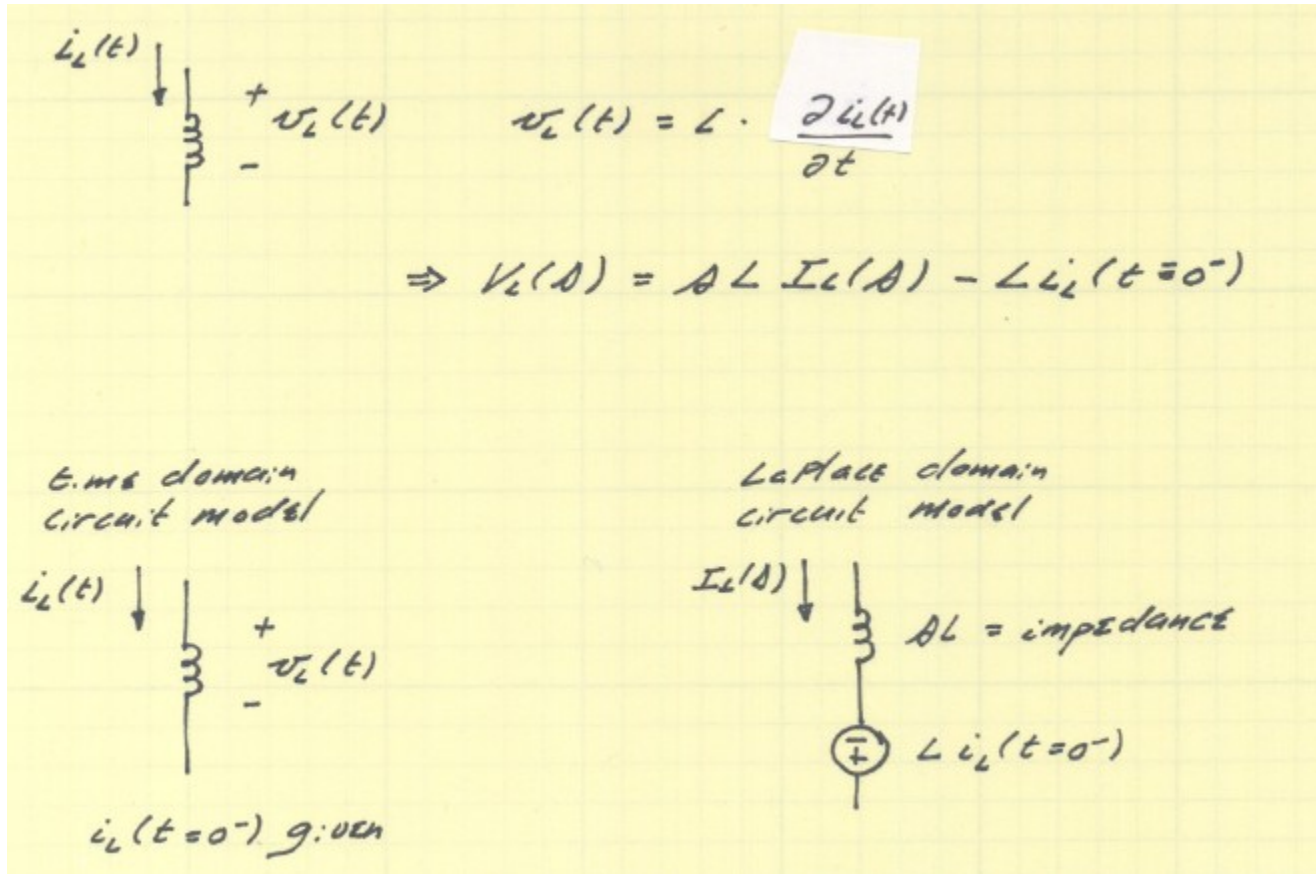 i_L(t)
+
v_L(t)
-
v_L(t) = L · ∂i_L(t)/∂t
⇒ V_L(s) = s L I_L(s) - L i_L(t=0⁻)
time domain
circuit model
i_L(t)
+
v_L(t)
-
i_L(t=0⁻) given
LaPlace domain
circuit model
I_L(s)
sL = impedance
- +
L i_L(t=0⁻)